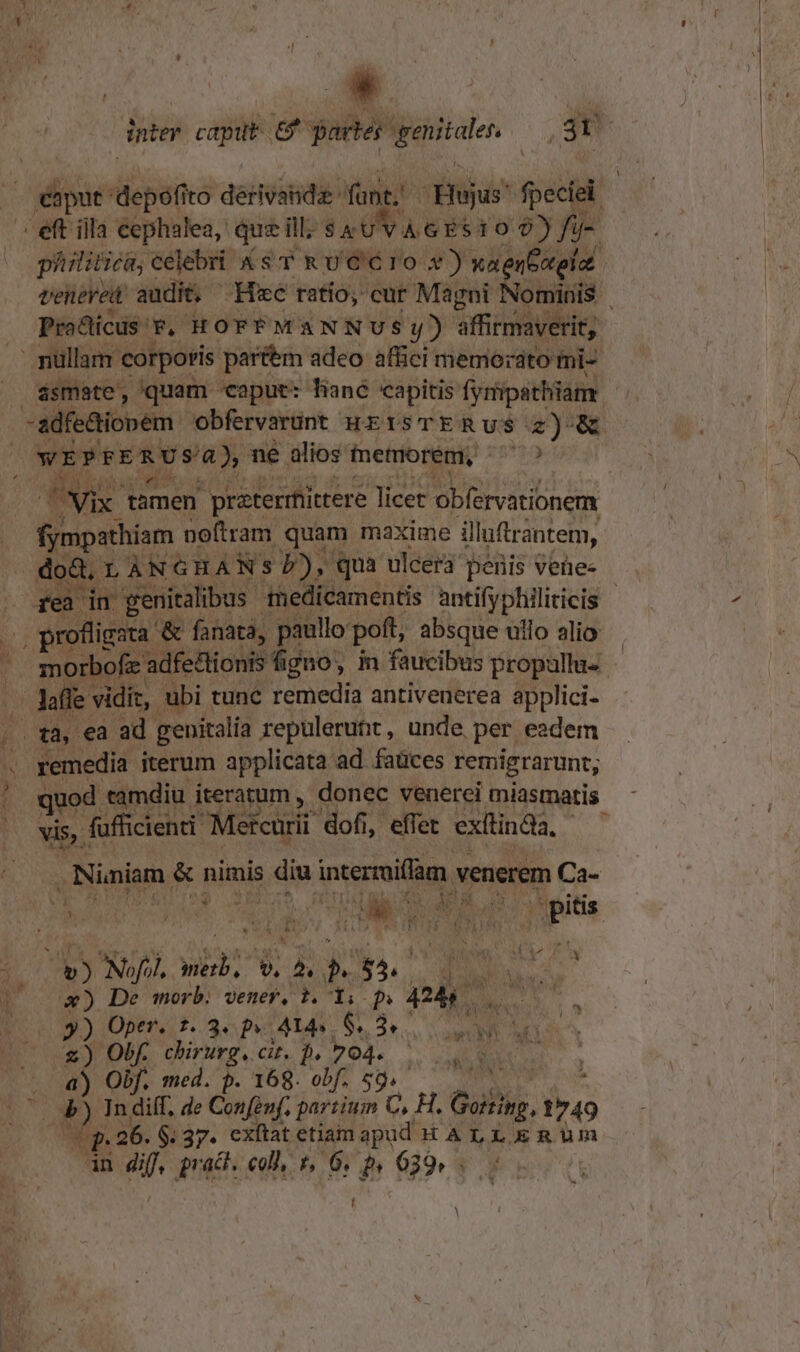 inter caput & partes genitales. 31
caput depoſito derivandæ ſunt. Hujus ſpeciei
eſt illa cephalea, quæ ill. SAUVAGESIO v) ſy-
philitica, celebri ASTRUCCIO x) καρηβαρία
venerea audit. Hæc ratio, cur Magni Nominis
Practicus F. HOFFMANNUS y) affirmaverit,
nullam corporis partem adeo affici memorato mi-
asmate, quam caput: hanc capitis ſympathiam
adfectionem obſervarunt HEISTERUS z) &
WEPFERUS a), ne alios memorem.
Vix tamen prætermittere licet obſervationem
ſympathiam noſtram quam maxime illuſtrantem,
doct. LANGHANS b), qua ulcera penis vene-
rea in genitalibus medicamentis antiſyphiliticis
profligata & ſanata, paullo poſt, absque ullo alio
morboſæ adfectionis ſigno, in faucibus propullu-
laſſe vidit, ubi tunc remedia antivenerea applici-
ta, ea ad genitalia repulerunt, unde per eadem
remedia iterum applicata ad fauces remigrarunt;
quod tamdiu iteratum, donec venerei miasmatis
vis, ſufficienti Mercurii doſi, eſſet exſtincta.
Nimiam & nimis diu intermiſſam venerem Ca-
pitis
v) Noſol. meth. v. 2. p. 53.
x) De morb. vener. t. 1. p. 424.
y) Oper. t. 3. p. 414. §. 3.
z) Obſ. chirurg. cit. p. 704.
a) Obſ. med. p. 168. obſ. 59.
b) In diſſ. de Conſenſ. partium C. H. Gotting. 1749
p. 26. §. 37. exſtat etiam apud HALLERUM
in diſſ. pract. coll. t. 6. p. 639.